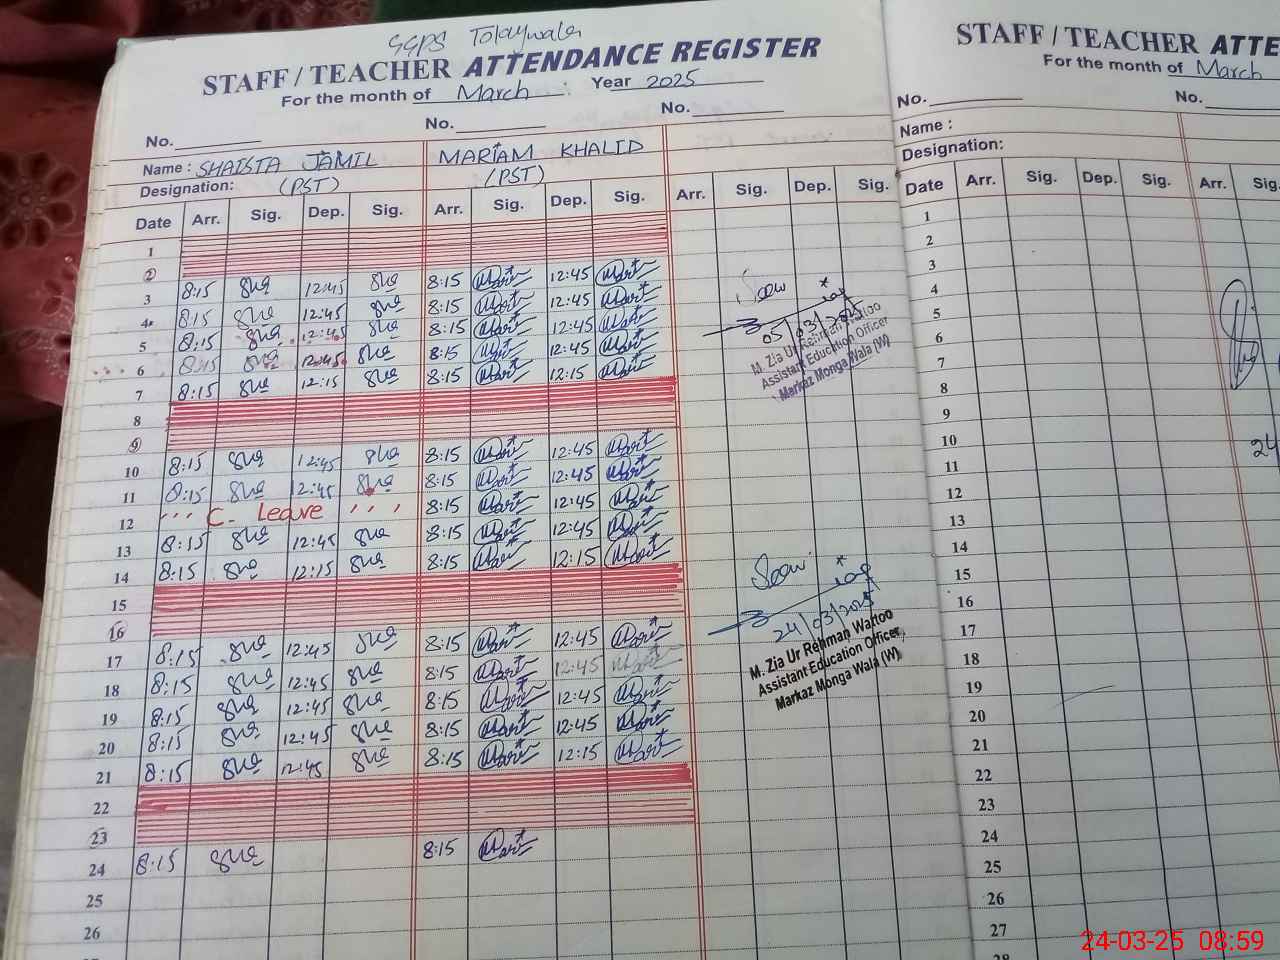 GGPS Tolaywala
STAFF / TEACHER ATTENDANCE REGISTER
For the month of March Year 2025
No. No. No.
Name : SHAISTA JAMIL MARIAM KHALID
Designation: (PST) (PST)
Date Arr. Sig. Dep. Sig. Arr. Sig. Dep. Sig. Arr. Sig. Dep. Sig.
1
2
3 8:15 12:45 8:15 12:45
4 8:15 12:45 8:15 12:45
5 8:15 12:45 8:15 12:45
6 8:15 12:45 8:15 12:45
7 8:15 12:15 8:15 12:15
8
9
10 8:15 12:45 8:15 12:45
11 8:15 12:45 8:15 12:45
12 ,,, C. Leave ,,, 8:15 12:45
13 8:15 12:45 8:15 12:45
14 8:15 12:15 8:15 12:15
15
16
17 8:15 12:45 8:15 12:45
18 8:15 12:45 8:15 12:45
19 8:15 12:45 8:15 12:45
20 8:15 12:45 8:15 12:45
21 8:15 12:45 8:15 12:15
22
23
24 8:15 8:15
25
26
Seen
05/03/2025
M. Zia Ur Rehman Wattoo
Assistant Education Officer
Markaz Monga Wala (W)
Seen
24/03/2025
M. Zia Ur Rehman Wattoo
Assistant Education Officer
Markaz Monga Wala (W)
STAFF / TEACHER ATTE
For the month of March
No. No.
Name :
Designation:
Date Arr. Sig. Dep. Sig. Arr. Sig.
1
2
3
4
5
6
7
8
9
10 24
11
12
13
14
15
16
17
18
19
20
21
22
23
24
25
26
27
28
24-03-25 08:59